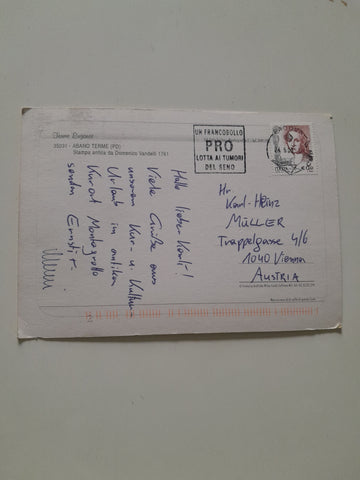 Terme Euganee
35031 - ABANO TERME (PD)
Stampa antica da Domenico Vandelli 1761
UN FRANCOBOLLO
PRO
LOTTA AI TUMORI
DEL SENO
Hallo lieber Karl!
Viele Grüße aus
unserem Kur- u. Kultur-
Urlaub im antiken
Kurort Montegrotto
senden Ernst+
Hr
Karl-Heinz
MÜLLER
Trappelgasse 4/6
1040 Vienna
AUSTRIA